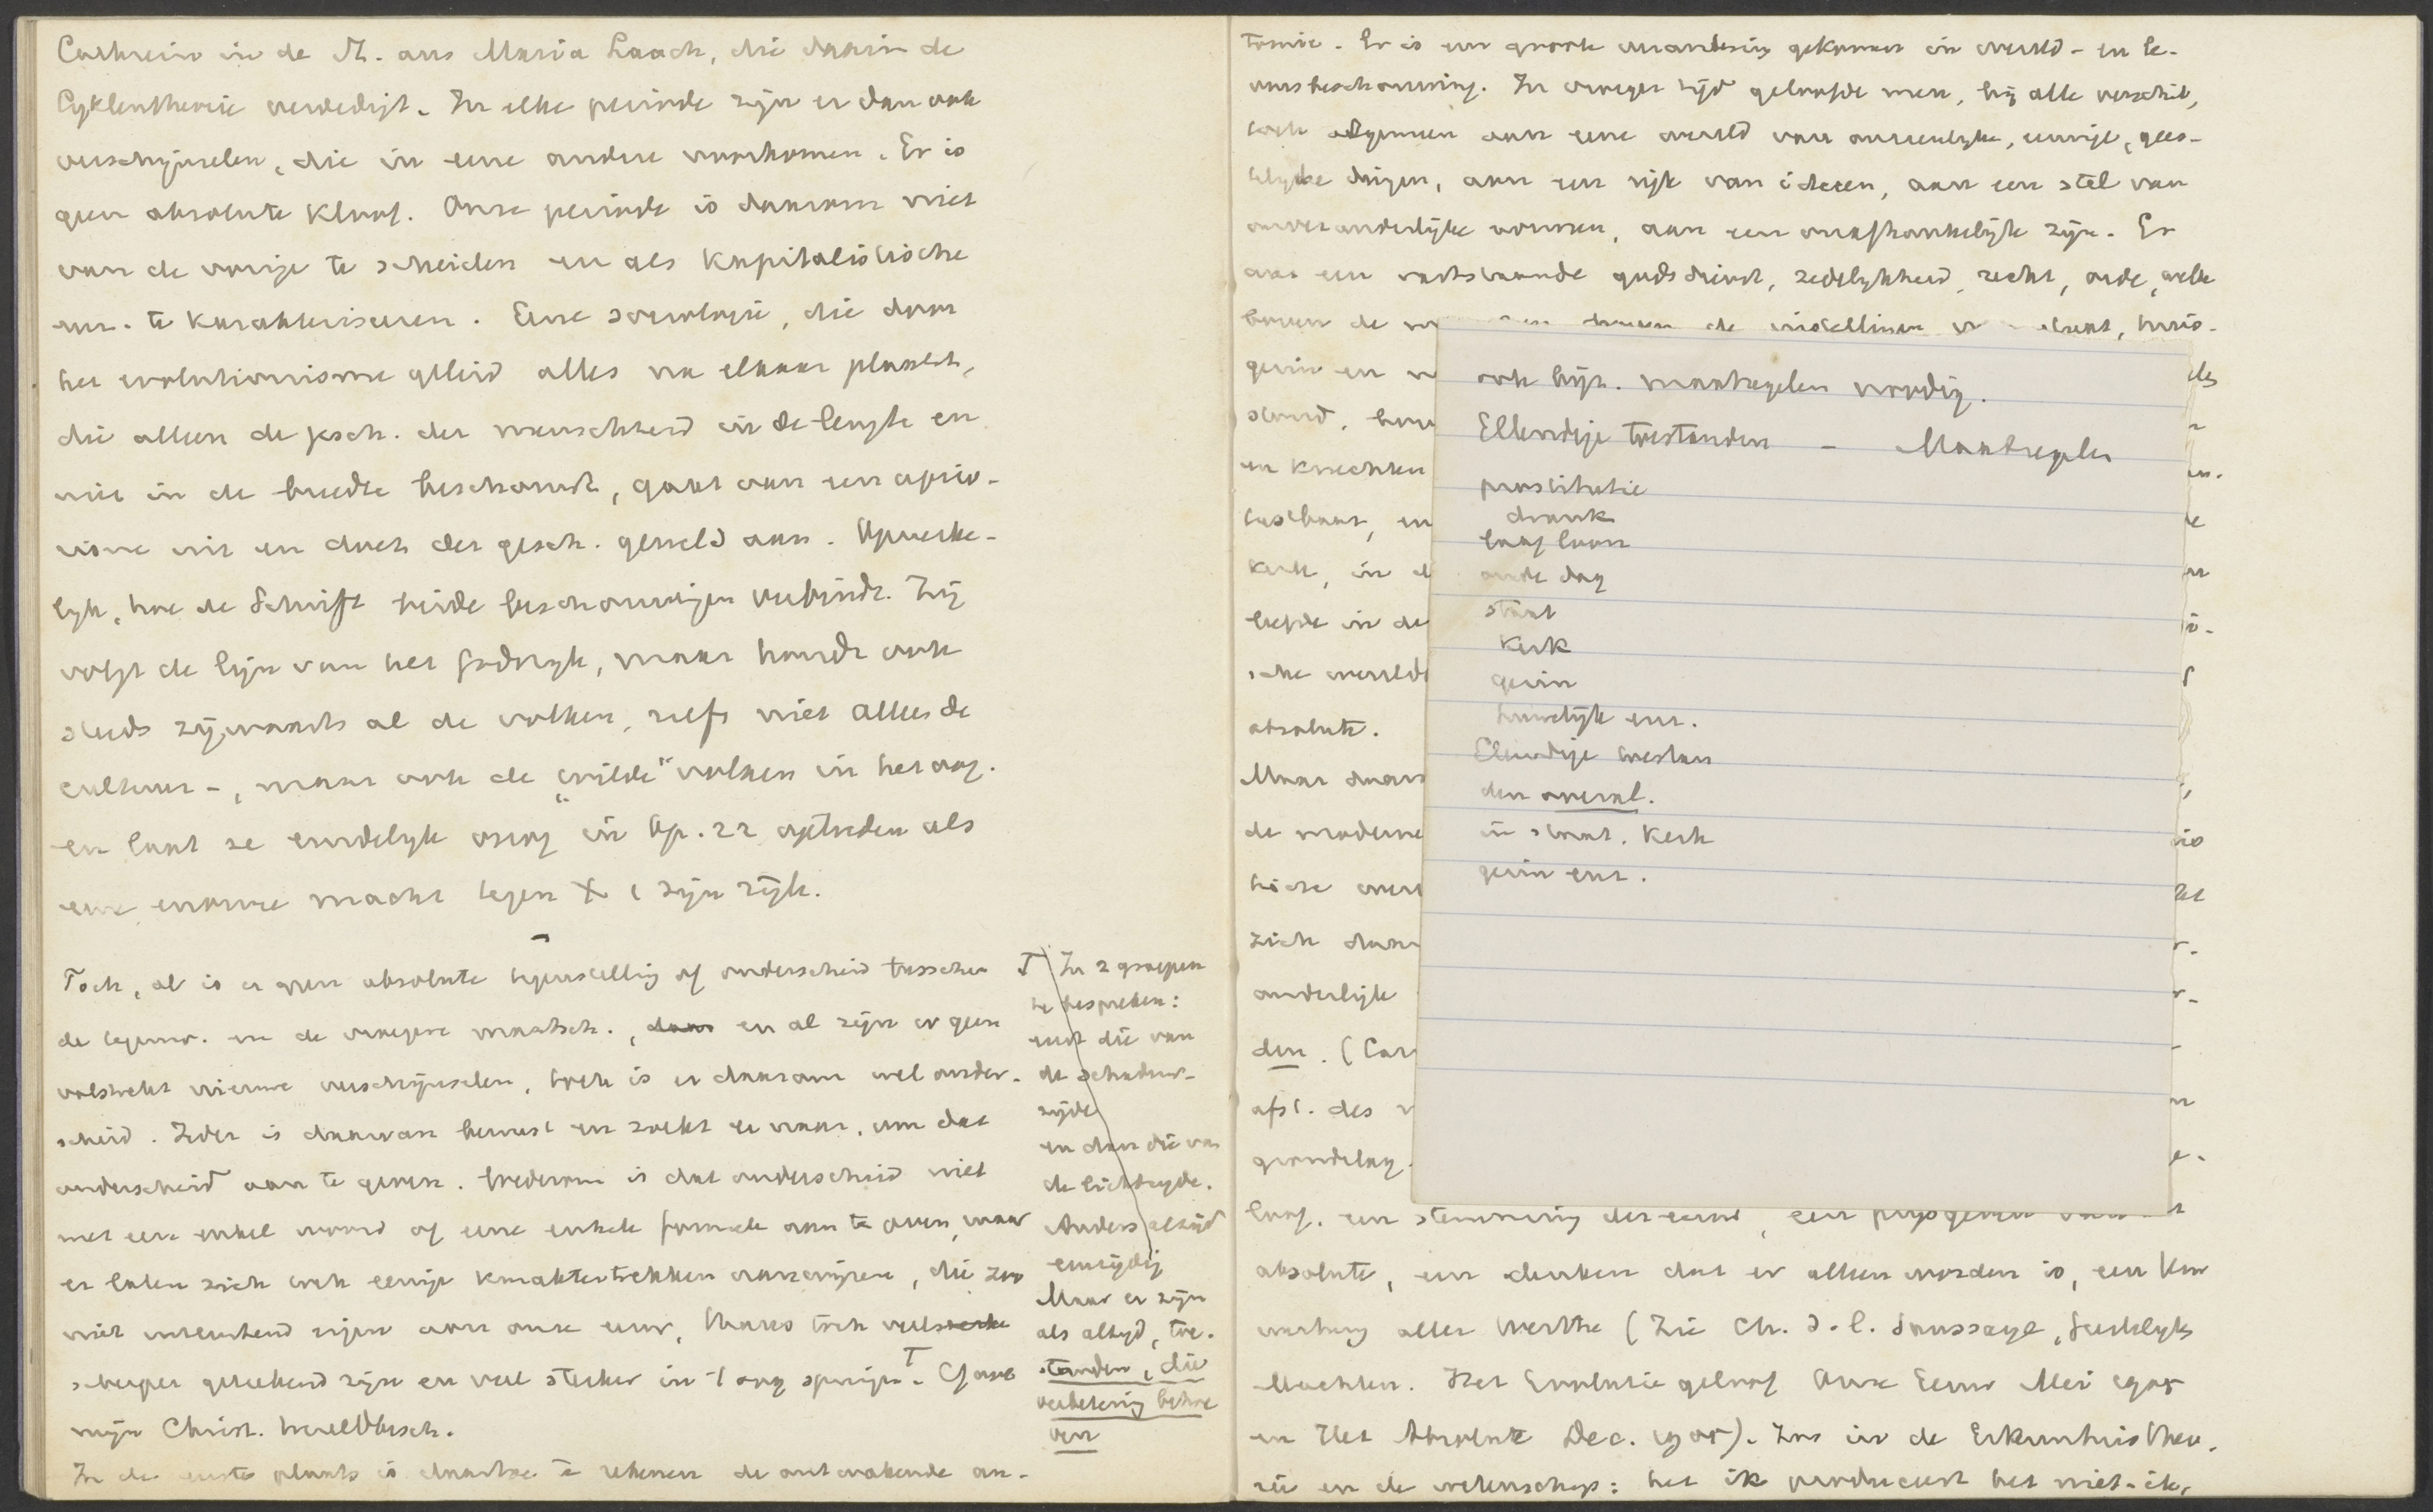 Cathrein in de St. aus Maria Laach, die daarin de
Cyklentheorie verdedigt. In elke periode zijn er dan ook
verschijnselen, die in eene andere voorkomen. Er is
geen absolute kloof. Onze periode is daarom niet
van de vorige te scheiden en als kapitalistische
enz. te karakteriseeren. Eene sociologie, die door
het evolutionisme geleid alles na elkaar plaatst,
die alleen de gesch. der menschheid in de lengte en
niet in de breedte beschouwt, gaat van een aprio-
risme uit en doet der gesch. geweld aan. Opmerke-
lijk, hoe de Schrift beide beschouwingen verbindt. Zij
volgt de lijn van het Godsrijk, maar houdt ook
steeds zijwaarts al de volken, zelfs niet alleen de
cultuur-, maar ook de „wilde" volken in het oog.
en laat ze eindelijk nog in Op. 22 optreden als
eene enorme macht tegen X & zijn rijk.
Toch, al is er geen absolute tegenstelling of onderscheid tusschen
de tegenw. en de vroegere maatsch., daar en al zijn er geen
volstrekt nieuwe verschijnselen, toch is er daarom wel onder-
scheid. Ieder is daarvan bewust en zoekt er naar, om dat
onderscheid aan te geven. Wederom is dat onderscheid niet
met een enkel woord of eene enkele formule aan te geven, maar
er laten zich toch eenige karaktertrekken aanwijzen, die zoo
niet uitsluitend eigen aan onze eeuw, thans toch veel sterke
scherper geteekend zijn en veel sterker in 't oog springen. T Cf over
mijn Christ. wereldbesch.
In de eerste plaats is daartoe te rekenen de ontwakende au-
T In 2 groepen
te bespreken:
eerst die van
de schaduw-
zijde
en dan die van
de lichtzijde.
Anders altijd
eenzijdig
Maar er zijn
als altijd, toe-
standen, die
verbetering behoe
ven
tonomie. Er is een groote verandering gekomen in wereld- en le-
vensbeschouwing. In vroeger tijd geloofde men, bij alle verschil,
toch algemeen aan eene wereld van onzienlijke, eeuwige, gees-
telijke dingen, aan een rijk van ideeen, aan een stel van
onveranderlijke normen, aan een onafhankelijk zijn. Er
was een vaststaande godsdienst, zedelijkheid, recht, orde, welke
boven de
gezin en
stand,
en knechten
tastbaar, en
kerk, in d
leefde in de
sche wereld
absolute.
Maar daar
de moderne
zich daar
anderlijke
den. (Car
afst. des
grondslag.
loof. een stemming der eeuw, een prijsgeven van het
absolute, een denken dat er alleen worden is, een Um
werthung aller Werthe (Zie Ch. d. l. Saussaye, Geestelijke
Machten. Het Evolutie geloof Onze Eeuw Mei 1905
en Het Absolute Dec. 1905). Zoo in de Erkenntnistheo-
rie en de wetenschap: het ik produceert het niet-ik,
ook bijz. maatregelen noodig.
Ellendige toestanden - Maatregelen
prostitutie
drank
laag loon
oude dag
staat
kerk
gezin
huwelijk enz.
Ellendige toestan
den overal.
in staat. kerk
gezin enz.